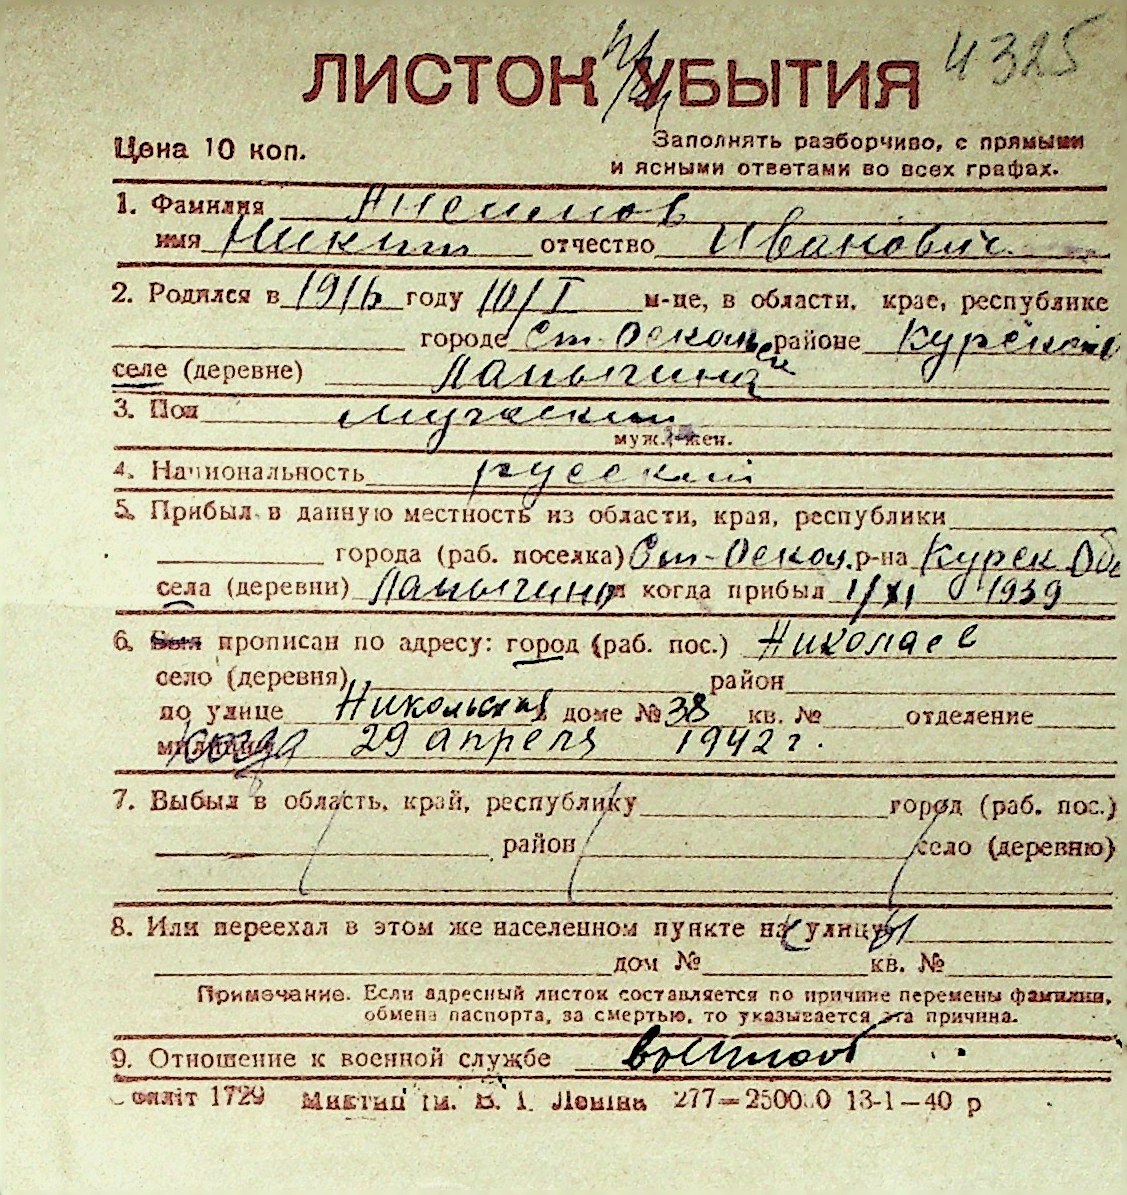 4325
ЛИСТОК УБЫТИЯ
Цена 10 коп.
Заполнять разборчиво, с прямыми
и ясными ответами во всех графах.
1. Фамилия Анисимов
имя Никит отчество Иванович
2. Родился в 1916 году 10/I м-це, в области, крае, республике
городе Ст-Осколь районе Курской
селе (деревне) Лапыгина
3. Пол мужской
муж. жен.
4. Национальность русский
5. Прибыл в данную местность из области, края, республики
города (раб. поселка) Ст-Оскол. р-на Курск Обл
села (деревни) Лапыгина и когда прибыл 1/XI 1939
6. Был прописан по адресу: город (раб. пос.) Николаев
село (деревня) район
по улице Никольская доме № 38 кв. № отделение
милиции когда 29 апреля 1942 г.
7. Выбыл в область, край, республику город (раб. пос.)
район село (деревню)
8. Или переехал в этом же населенном пункте на улицу
дом № кв. №
Примечание. Если адресный листок составляется по причине перемены фамилии,
обмена паспорта, за смертью, то указывается эта причина.
9. Отношение к военной службе
1729 Миктип ім. В. І. Леніна 277—250000 13-1—40 р